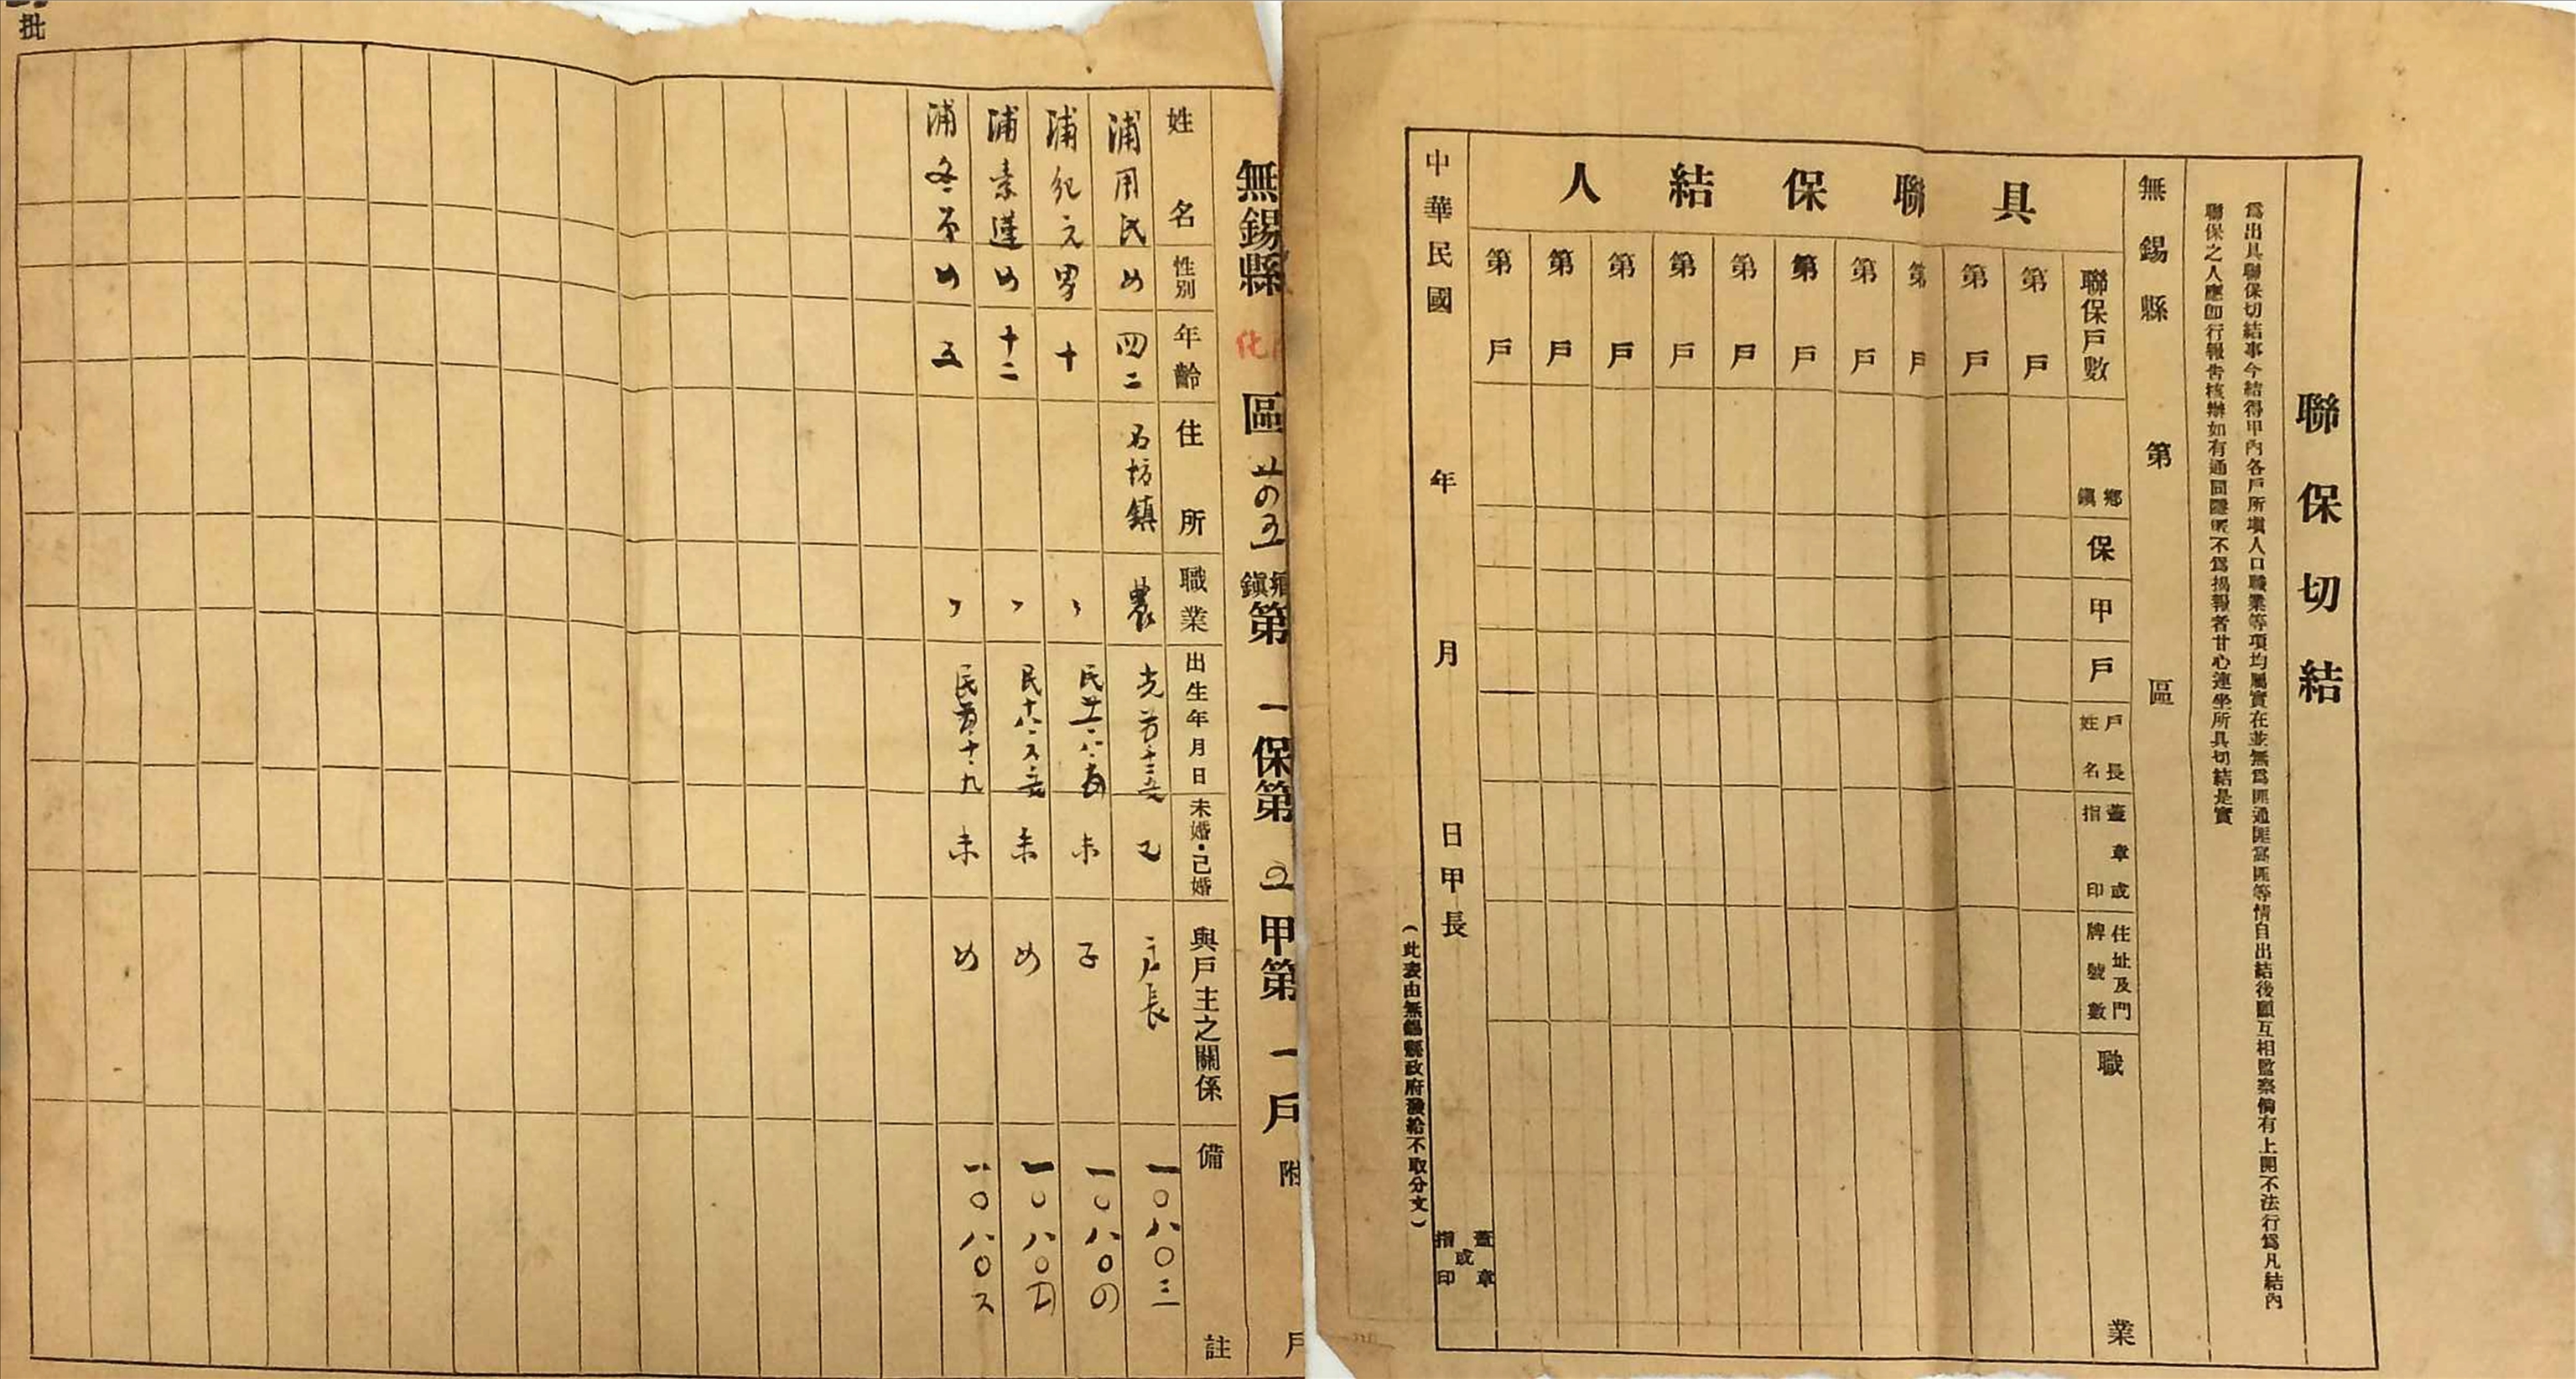 聯保切結
爲出具聯保切結事今結得甲內各戶所塡人口職業等項均屬實在並無爲匪通匪窩匪等情自出結後願互相監察倘有上開不法行爲凡結內
聯保之人應卽行報告核辦如有通同隱匿不爲揭報者甘心連坐所具切結是實
無錫縣 第 區
具聯保結人
聯保戶數 鄉鎮 保 甲 戶 戶長姓名 蓋章或指印 住址及門牌號數 職業
第 戶
第 戶
第 戶
第 戶
第 戶
第 戶
第 戶
第 戶
第 戶
第 戶
中華民國 年 月 日甲長 蓋章或指印
(此表由無錫縣政府發給不取分文)
無錫縣 化 區 鎮 第一保第二甲第一戶 附 戶
姓名 性別 年齡 住所 職業 出生年月日 未婚・已婚 與戶主之關係 備註
浦用民 女 四二 石坊鎮 農 已 戶長 一〇八〇三
浦紀元 男 十 〃 未 子 一〇八〇四
浦素蓮 女 十二 〃 未 女 一〇八〇五
浦冬 女 五 〃 未 女 一〇八〇六
批